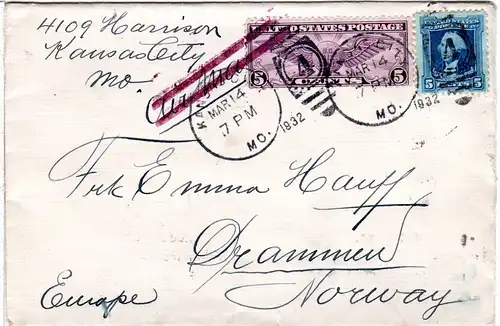 4109 Harrison
Kansas City
Mo.
Air Mail
UNITED STATES POSTAGE
5 CENTS 5
UNITED STATES POSTAGE
5 CENTS 5
KAN
MAR 14
7 PM
MO.
1932
MAR 14
7 PM
MO.
1932
Frk Emma Hauff
Drammen
Norway
Europe